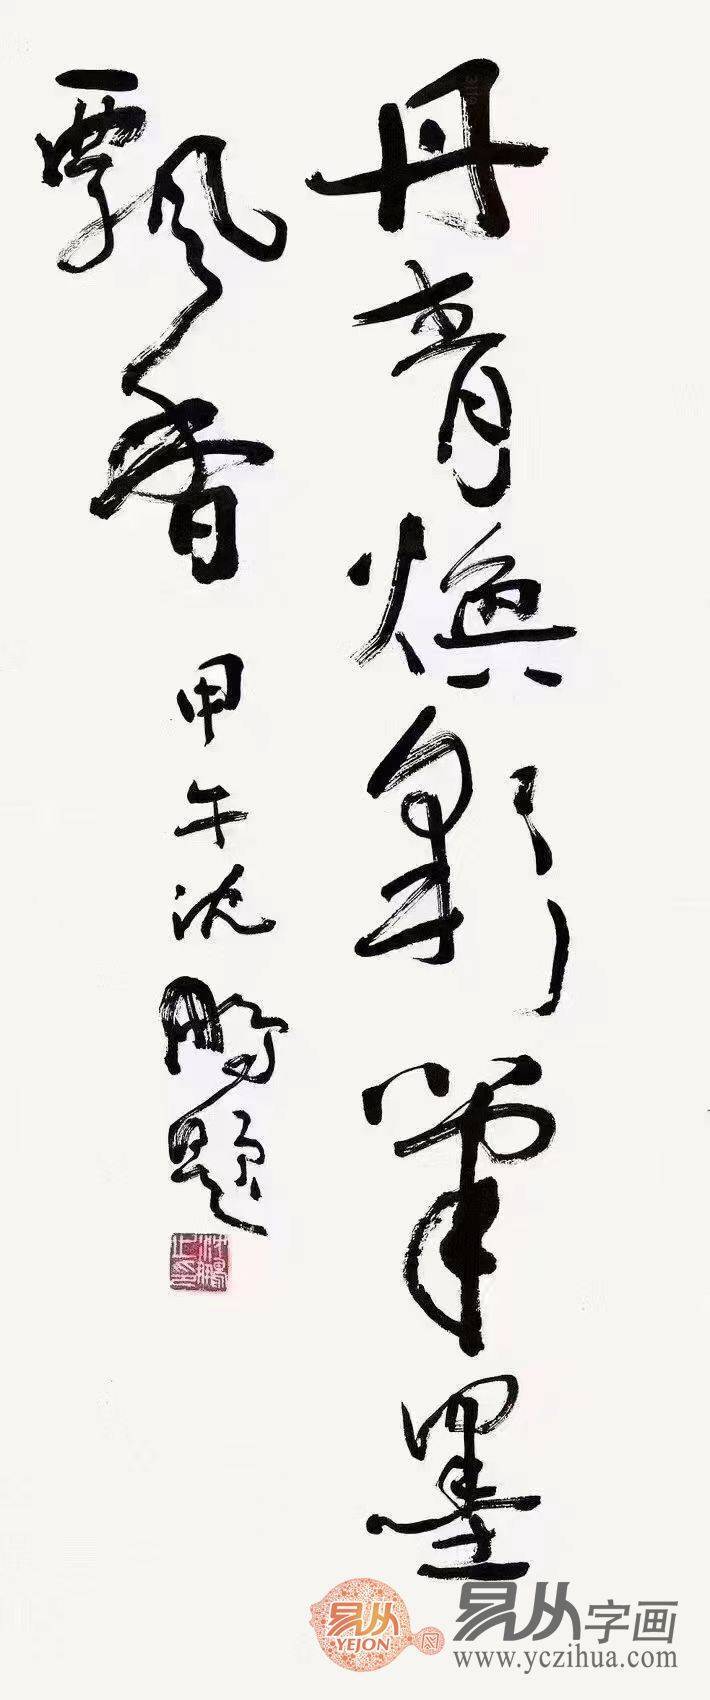 丹青焕彩笔墨
飘香
甲午沈鹏题
沈鹏之印
易从
YEJON
易从字画
www.yczihua.com